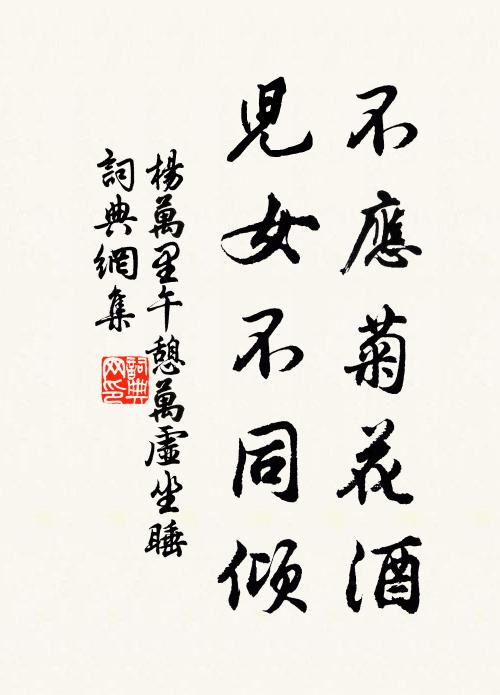 不應菊花酒
兒女不同傾
楊萬里午憩萬虛坐睡
詞典網集
詞典網印